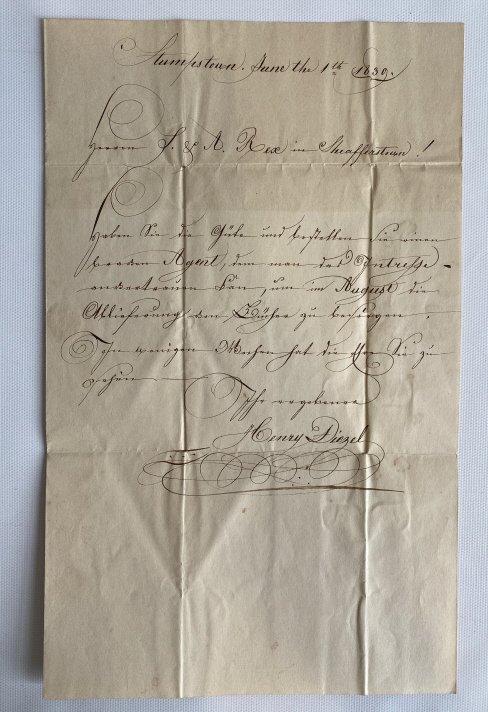 Stumpstown. June the 1th 1839.
Herrn S. & A. Rex in Sheafferstown!
Haben Sie die Güte und bestellen Sie einen
braven Agent, dem man das Intresse
anvertrauen kan, um im August die
Ablieferung von Bücher zu besorgen.
In wenigen Wochen hat die Ehre Sie zu
sehen
Ihr ergebener
Henry Diezel